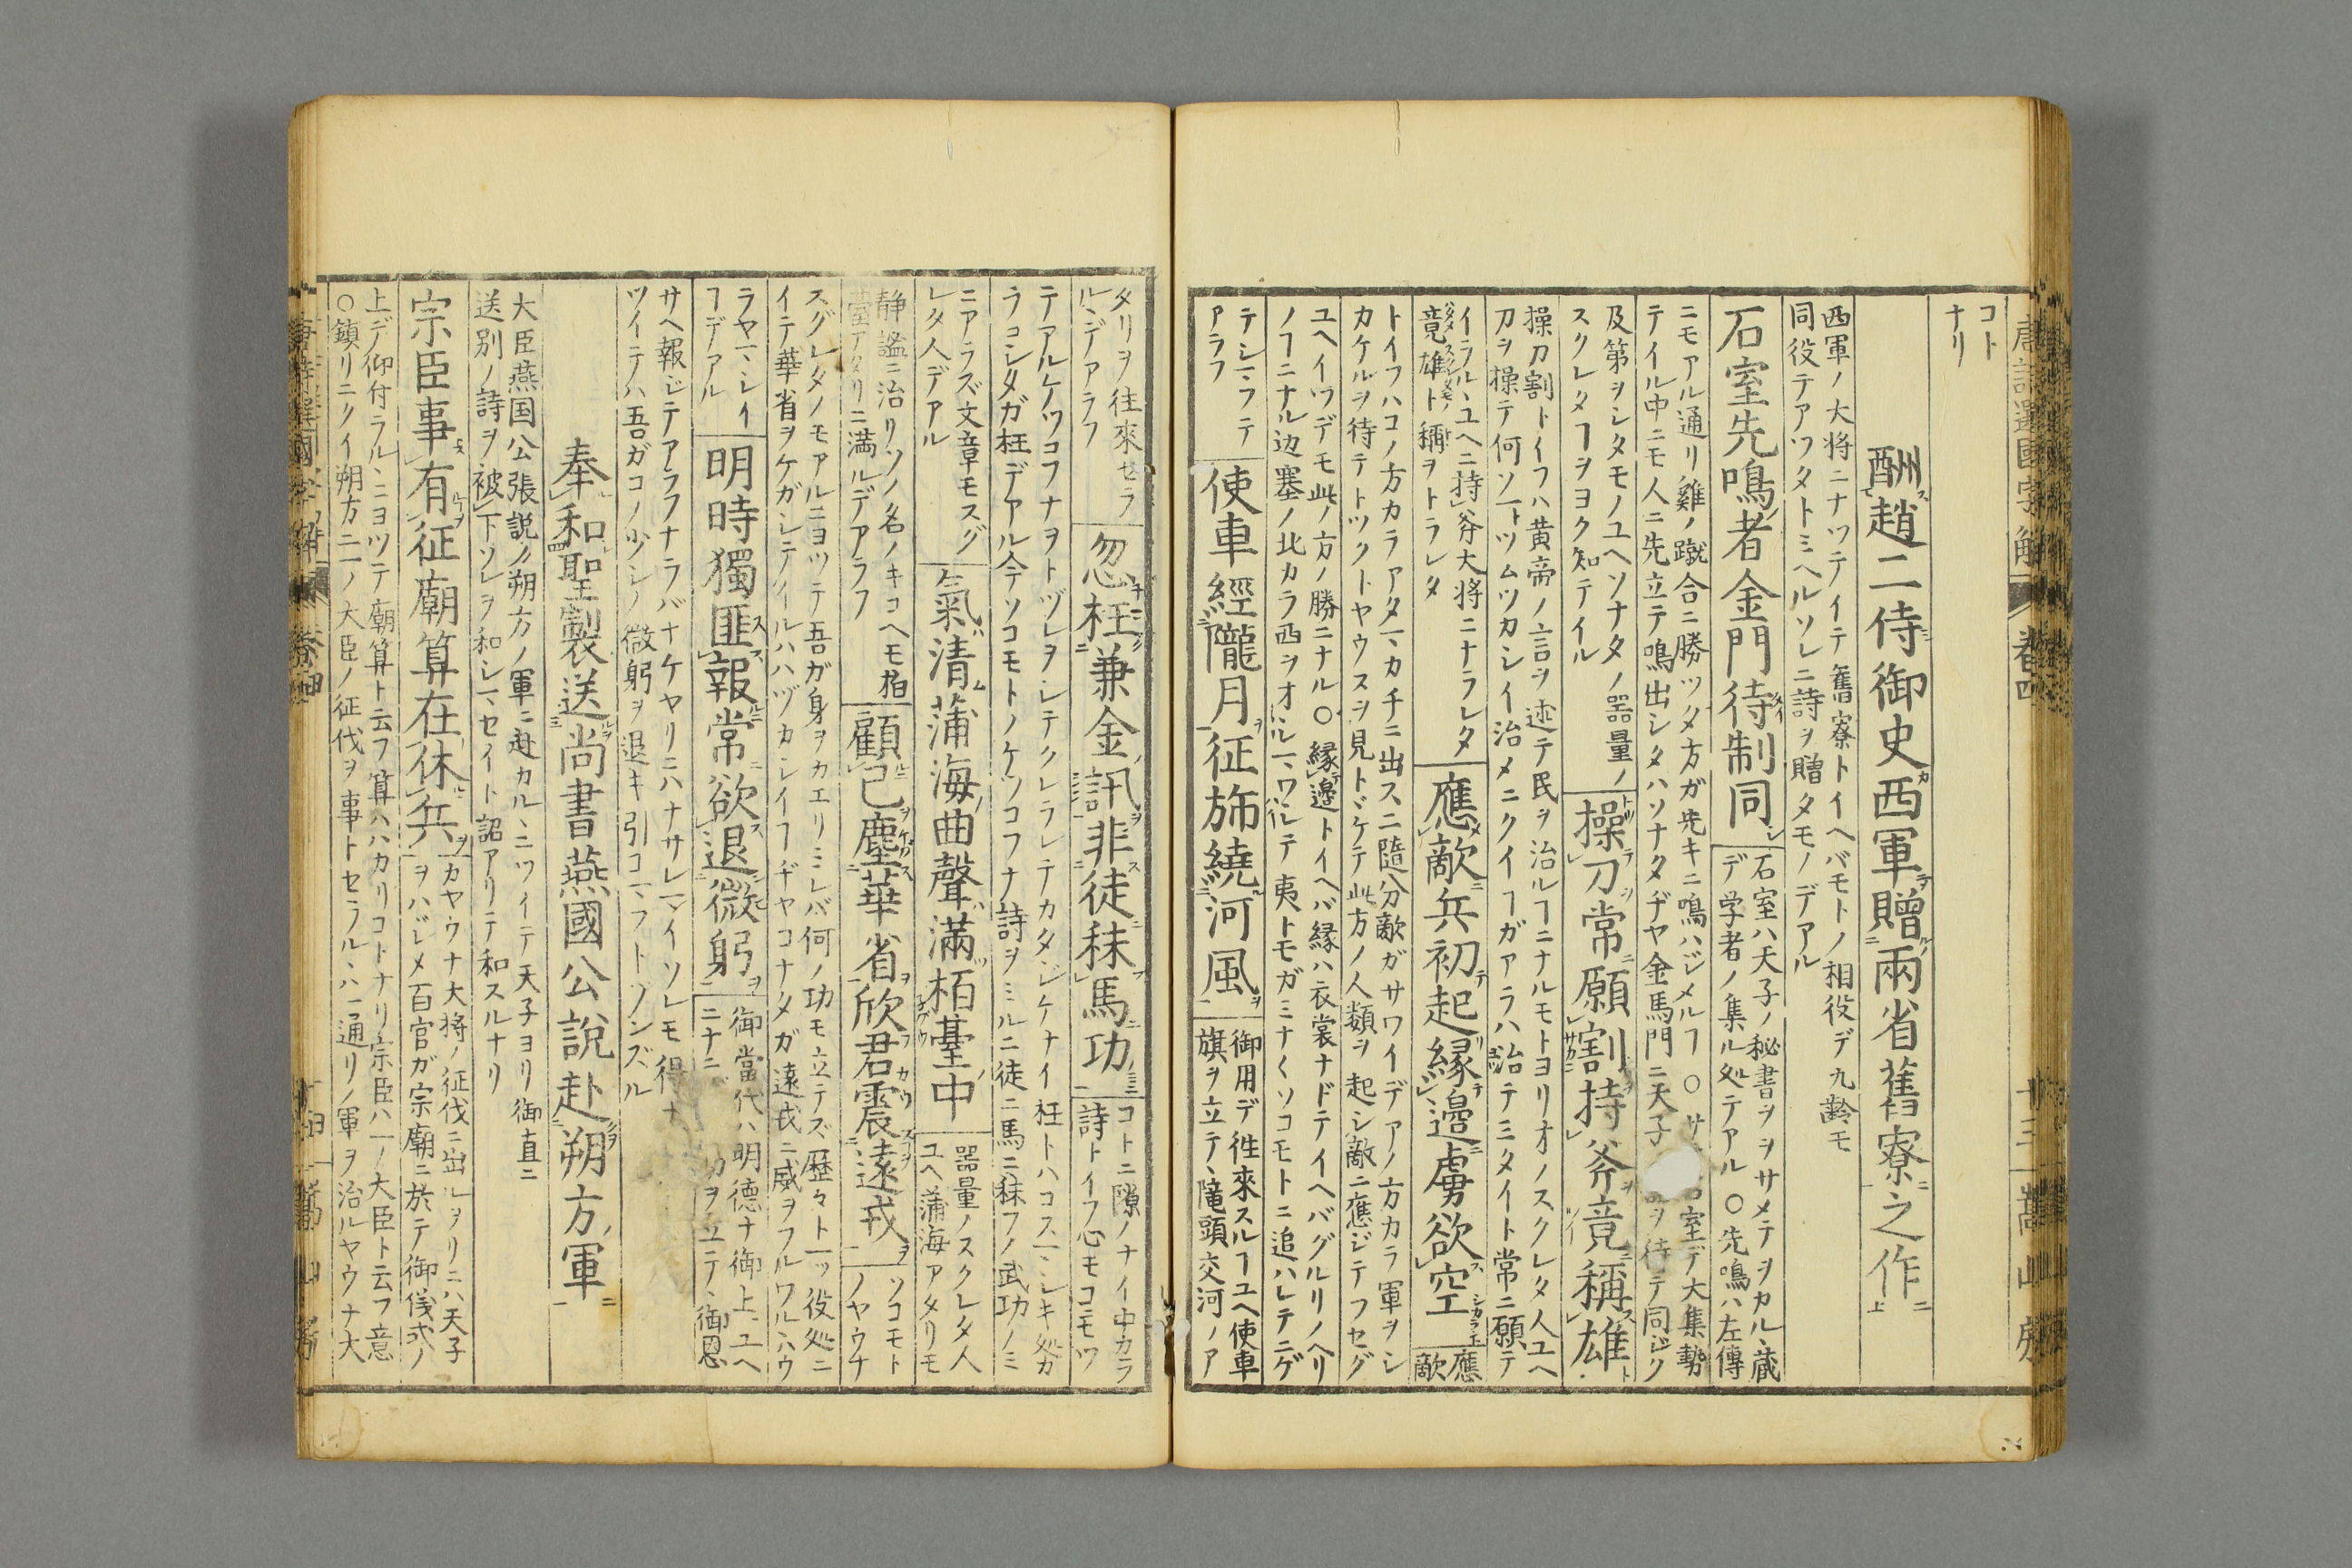 コト
ナリ
酬趙二侍御史西軍贈兩省舊寮之作
西軍ノ大将ニナツテイテ舊寮トイヘバモトノ相役デ九齢モ
同役テアツタトミヘルソレニ詩ヲ贈タモノデアル
石室先鳴者金門待制同
石室ハ天子ノ秘書ヲヲサメテヲカル、蔵
デ学者ノ集ル処テアル○先鳴ハ左傳
ニモアル通リ雞ノ蹴合ニ勝ツタ方ガ先キニ鳴ハジメルヿ○
室デ大集勢
テイル中ニモ人ニ先立テ鳴出シタハソナタヂヤ金馬門ニ天子
ヲ待テ同ジク
及第ヲシタモノユヘソナタノ器量ノ
スクレタヿヲヨク知テイル
操刀常願割持斧竟稱雄
操刀割トイフハ黄帝ノ言ヲ述テ民ヲ治ルヿニナルモトヨリオノスクレタ人ユヘ
刀ヲ操テ何ソ一トツムツカシイ治メニクイヿガアラハ治テミタイト常ニ願テ
イラル、ユヘニ持斧大将ニナラレタ
竟雄ト稱ヲトラレタ
應敵兵初起縁邉虜欲空
應
敵
トイフハコノ方カラアタマカチニ出ス二隨分敵ガサワイデアノ方カラ軍ヲシ
カケルヲ待テトツクトヤウスヲ見トヾケテ此方ノ人類ヲ起シ敵ニ應ジテフセグ
ユヘイツデモ此ノ方ノ勝ニナル○縁邉トイヘバ縁ハ衣裳ナドテイヘバグルリノヘリ
ノヿニナル辺塞ノ北カラ西ヲオルマワシテ夷トモガミナ〱ソコモトニ追ハレテニゲ
テシマフテ
アラフ
使車經隴月征斾繞河風
御用デ徃來スルヿユヘ使車
旗ヲ立テ、隴頭交河ノア
タリヲ往來セラ
ル、デアラフ
忽枉兼金訊非徒秣馬功
コトニ隙ノナイ中カラ
詩トイフ心モコモツ
テアルケツコフナヲトヅレヲシテクレラレテカタジケナイ枉トハコスマシキ処カ
ラコシタガ枉デアル今ソコモトノケツコフナ詩ヲミルニ徒ニ馬ニ秣フノ武功ノミ
ニアラズ文章モスグ
レタ人デアル
氣清蒲海曲聲滿栢臺中
器量ノスクレタ人
ユヘ蒲海アタリモ
静謐ニ治リソノ名ノキコヘモ栢
臺アタリニ満ルデアラフ
顧己塵華省欣君震遠戎
ソコモト
ノヤウナ
スグレタノモアルニヨツテ吾ガ身ヲカエリミレバ何ノ功モ立テズ歴々ト一ツ役処ニ
イテ華省ヲケガシテイルハハヅカシイヿヂヤコナタガ遠戎ニ威ヲフルワル、ハウ
ラヤマシイ
ヿデアル
明時獨匪報常欲退微躬
御當代ハ明德ナ御上ユヘ
ニナニ
功ヲ立テ、御恩
サヘ報ジテアラフナラバナケヤリニハナサレマイソレモ得ナ
ツイテハ吾ガコノ少シノ微躬ヲ退キ引コマフトゾンズル
奉和聖製送尚書燕國公說赴朔方軍
大臣燕国公張説ノ朔方ノ軍ニ赴カル、ニツイテ天子ヨリ御直ニ
送別ノ詩ヲ被下ソレヲ和シマセイト詔アリテ和スルナリ
宗臣事有征廟算在休兵
カヤウナ大将ノ征伐ニ出ルヲリニハ天子
ヲハジメ百官ガ宗廟ニ於テ御儀式ノ
上デ御付ラル、ニヨツテ廟算ト云フ算ハハカリコトナリ宗臣ハ一ノ大臣ト云フ意
○鎮リニクイ朔方ニ一ノ大臣ノ征伐ヲ事トセラル、ハ一通リノ軍ヲ治ルヤウナ大